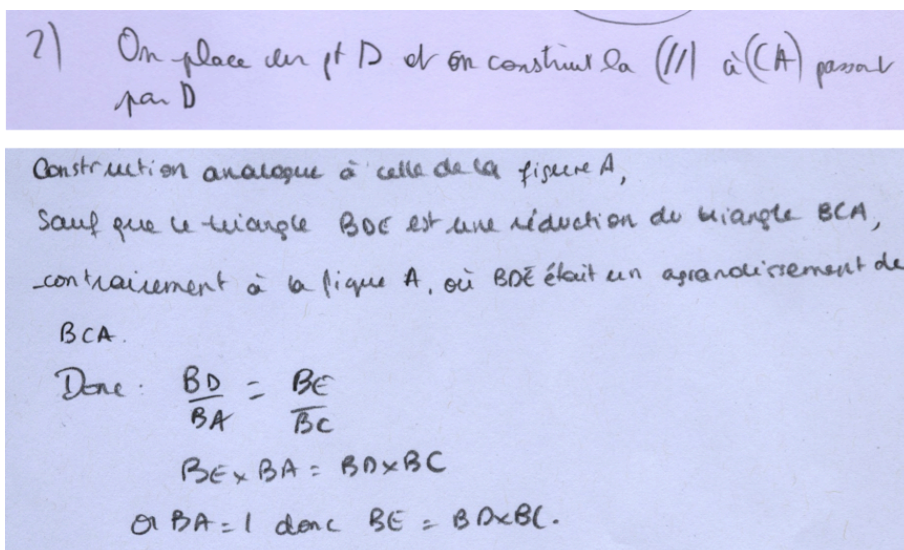 2) On place un pt D et on construit la (//) à (CA) passant
par D
Construction analogue à celle de la figure A,
Sauf que le triangle BDE est une réduction du triangle BCA,
contrairement à la figure A, où BDE était un agrandissement de
BCA.
Donc : BD/BA = BE/BC
BE × BA = BD × BC
or BA = 1 donc BE = BD × BC.